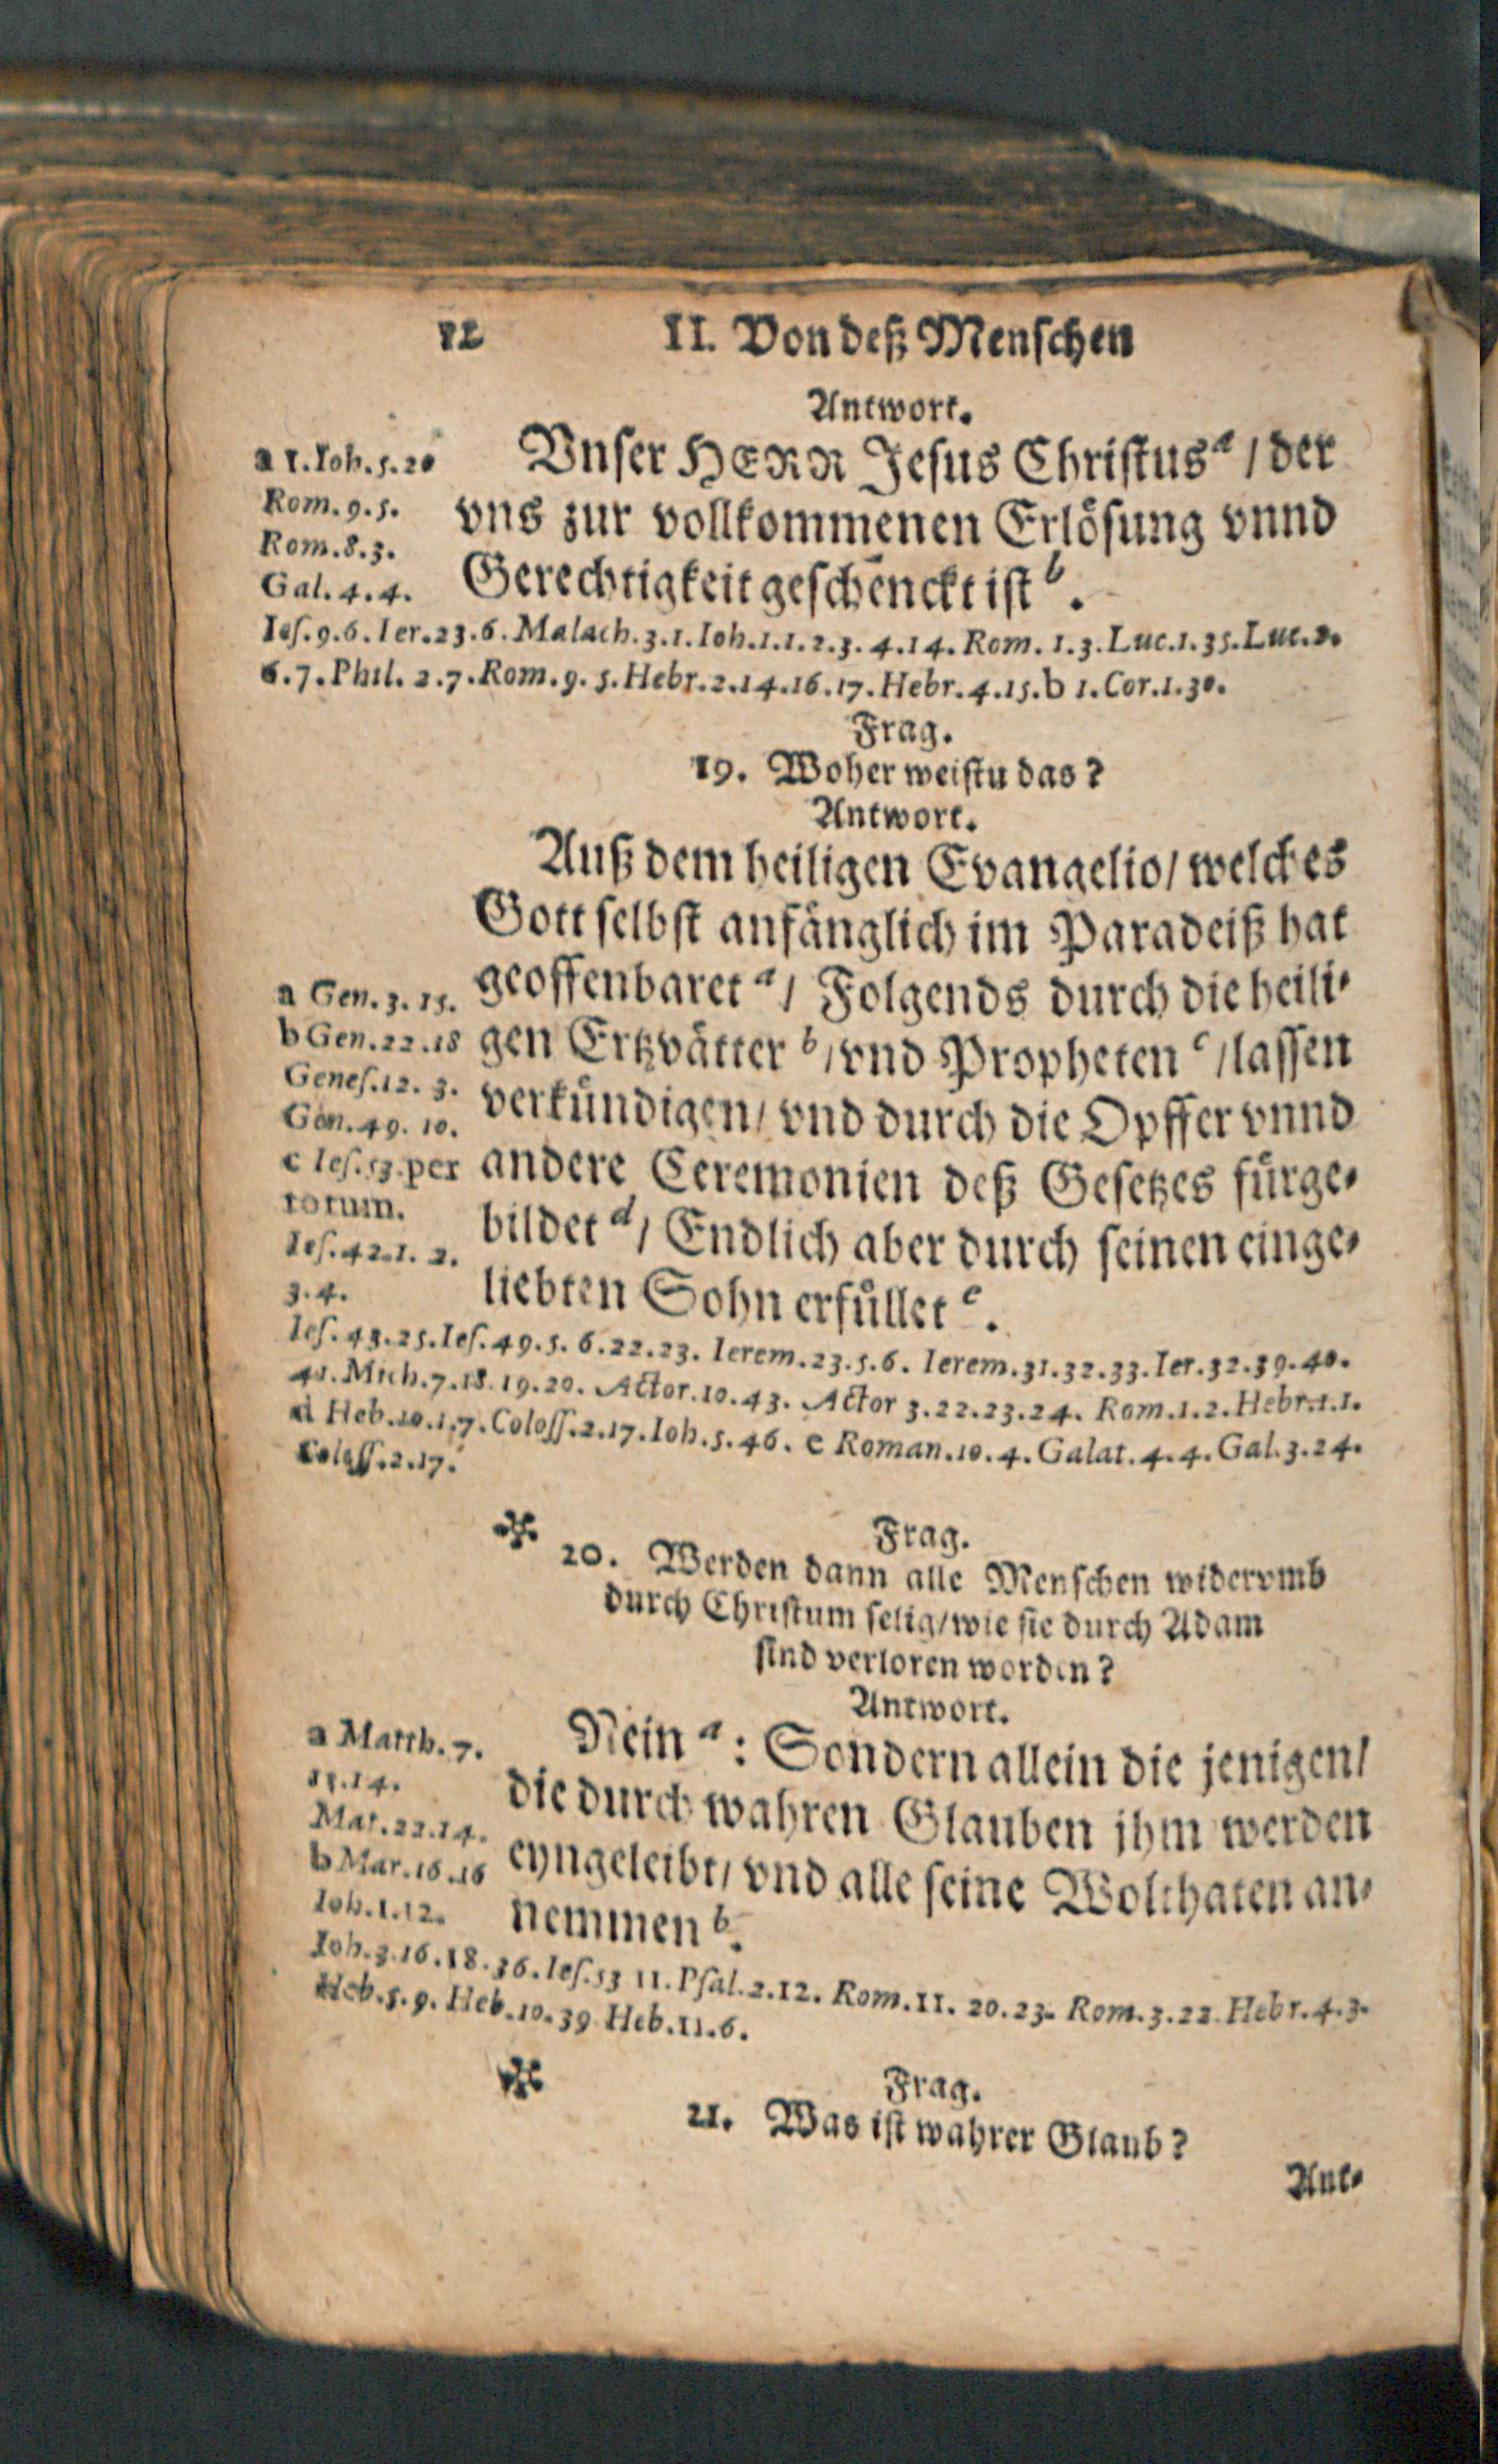 12 II. Von deß Menschen
Antwort.
a 1. Ioh. 5. 20
Rom. 9. 5.
Rom. 8. 3.
Gal. 4. 4.
Vnser HERR Jesus Christus a / der
vns zur vollkommenen Erlösung vnnd
Gerechtigkeit geschenckt ist b.
Ies. 9. 6. Ier. 23. 6. Malach. 3. 1. Ioh. 1. 1. 2. 3. 4. 14. Rom. 1. 3. Luc. 1. 35. Luc. 2.
6. 7. Phil. 2. 7. Rom. 9. 5. Hebr. 2. 14. 16. 17. Hebr. 4. 15. b 1. Cor. 1. 30.
Frag.
19. Woher weistu das?
Antwort.
Auß dem heiligen Evangelio / welches
Gott selbst anfänglich im Paradeiß hat
geoffenbaret a / Folgends durch die heili-
gen Ertzvätter b / vnd Propheten c / lassen
verkündigen / vnd durch die Opffer vnnd
andere Ceremonien deß Gesetzes fürge-
bildet d / Endlich aber durch seinen einge-
liebten Sohn erfüllet e.
a Gen. 3. 15.
b Gen. 22. 18
Genes. 12. 3.
Gen. 49. 10.
c Ies. 53. per
totum.
Ies. 42. 1. 2.
3. 4.
Ies. 43. 25. Ies. 49. 5. 6. 22. 23. Ierem. 23. 5. 6. Ierem. 31. 32. 33. Ier. 32. 39. 40.
41. Mich. 7. 18. 19. 20. Actor. 10. 43. Actor 3. 22. 23. 24. Rom. 1. 2. Hebr. 1. 1.
d Heb. 10. 1. 7. Coloss. 2. 17. Ioh. 5. 46. e Roman. 10. 4. Galat. 4. 4. Gal. 3. 24.
Coloss. 2. 17.
Frag.
20. Werden dann alle Menschen widervmb
durch Christum selig / wie sie durch Adam
sind verloren worden?
Antwort.
Nein a : Sondern allein die jenigen /
die durch wahren Glauben jhm werden
eyngeleibt / vnd alle seine Wolthaten an-
nemmen b.
a Matth. 7.
13. 14.
Mat. 22. 14.
b Mar. 16. 16
Ioh. 1. 12.
Ioh. 3. 16. 18. 36. Ies. 53 11. Psal. 2. 12. Rom. 11. 20. 23. Rom. 3. 22. Hebr. 4. 3.
Heb. 5. 9. Heb. 10. 39 Heb. 11. 6.
Frag.
21. Was ist wahrer Glaub?
Ant-